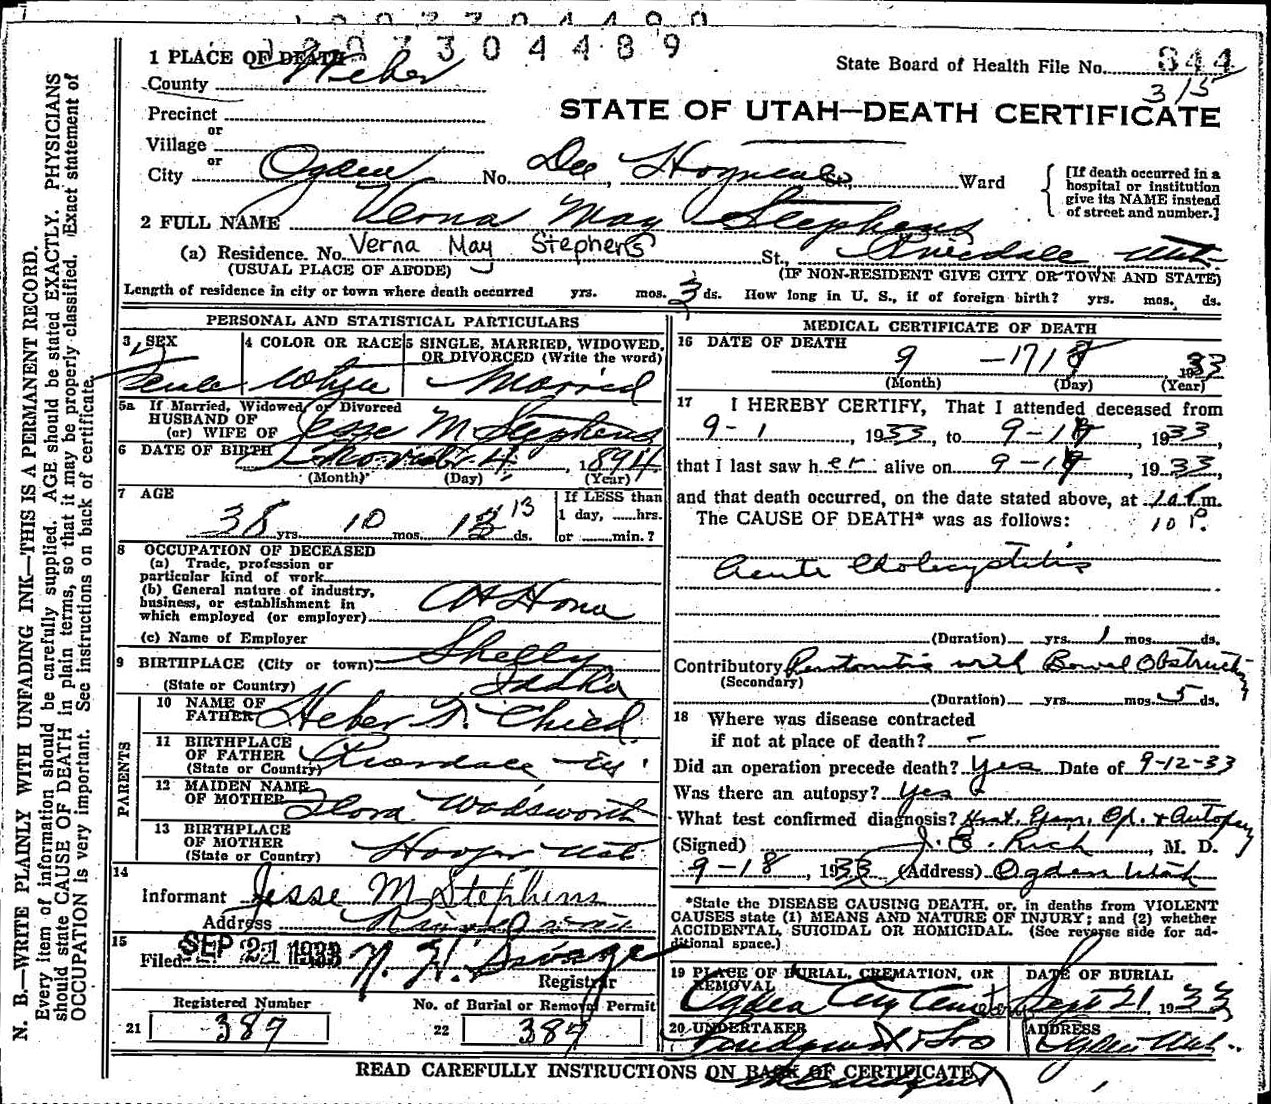 1007304489
1 PLACE OF DEATH
County Weber
State Board of Health File No. 844
3/5
Precinct
or
Village
or
City Ogden No. Dee Hospital St., Ward
[If death occurred in a hospital or institution give its NAME instead of street and number.]
STATE OF UTAH—DEATH CERTIFICATE
2 FULL NAME Verna May Stephens
(a) Residence. No. Verna May Stephens St., Riverdale Utah
(USUAL PLACE OF ABODE) (IF NON-RESIDENT GIVE CITY OR TOWN AND STATE)
Length of residence in city or town where death occurred yrs. mos. 3 ds. How long in U. S., if of foreign birth? yrs. mos. ds.
N. B.—WRITE PLAINLY WITH UNFADING INK—THIS IS A PERMANENT RECORD.
Every item of information should be carefully supplied. AGE should be stated EXACTLY. PHYSICIANS
should state CAUSE OF DEATH in plain terms, so that it may be properly classified. Exact statement of
OCCUPATION is very important. See instructions on back of certificate.
PERSONAL AND STATISTICAL PARTICULARS
3 SEX Female
4 COLOR OR RACE White
5 SINGLE, MARRIED, WIDOWED, OR DIVORCED (Write the word) Married
5a If Married, Widowed, or Divorced
HUSBAND OF
(or) WIFE OF Jesse M Stephens
6 DATE OF BIRTH Nov 4, 1894
(Month) (Day) (Year)
7 AGE 38 yrs. 10 mos. 13 ds.
If LESS than
1 day, hrs.
or min.?
8 OCCUPATION OF DECEASED
(a) Trade, profession or
particular kind of work
(b) General nature of industry,
business, or establishment in
which employed (or employer) At Home
(c) Name of Employer
9 BIRTHPLACE (City or town) Shelly
(State or Country) Idaho
PARENTS
10 NAME OF FATHER Heber T. Child
11 BIRTHPLACE OF FATHER
(State or Country)
12 MAIDEN NAME OF MOTHER Flora Wadsworth
13 BIRTHPLACE OF MOTHER
(State or Country) Hooper Utah
14
Informant Jesse M Stephens
Address
15
Filed SEP 21 1933 N. H. Savage
Registrar
Registered Number
21 387
No. of Burial or Removal Permit
22 387
MEDICAL CERTIFICATE OF DEATH
16 DATE OF DEATH 9 — 17 1933
(Month) (Day) (Year)
17 I HEREBY CERTIFY, That I attended deceased from
9-1, 1933, to 9-17, 1933,
that I last saw h er alive on 9-17, 1933
and that death occurred, on the date stated above, at m.
10 P.
The CAUSE OF DEATH* was as follows:
Acute Cholecystitis
(Duration) yrs. 1 mos. ds.
Contributory Peritonitis with Bowel Obstruction
(Secondary)
(Duration) yrs. mos. 5 ds.
18 Where was disease contracted
if not at place of death? -
Did an operation precede death? Yes Date of 9-12-33
Was there an autopsy? Yes
What test confirmed diagnosis? Hist. Exam. Op. & Autopsy
(Signed) J. E. Rich, M. D.
9-18, 1933 (Address) Ogden Utah
*State the DISEASE CAUSING DEATH, or, in deaths from VIOLENT
CAUSES state (1) MEANS AND NATURE OF INJURY; and (2) whether
ACCIDENTAL, SUICIDAL OR HOMICIDAL. (See reverse side for ad-
ditional space.)
19 PLACE OF BURIAL, CREMATION, OR REMOVAL
Ogden City Cemetery
DATE OF BURIAL
Sept 21, 1933
20 UNDERTAKER
Lindquist & Sons
ADDRESS
Ogden Utah
READ CAREFULLY INSTRUCTIONS ON BACK OF CERTIFICATE